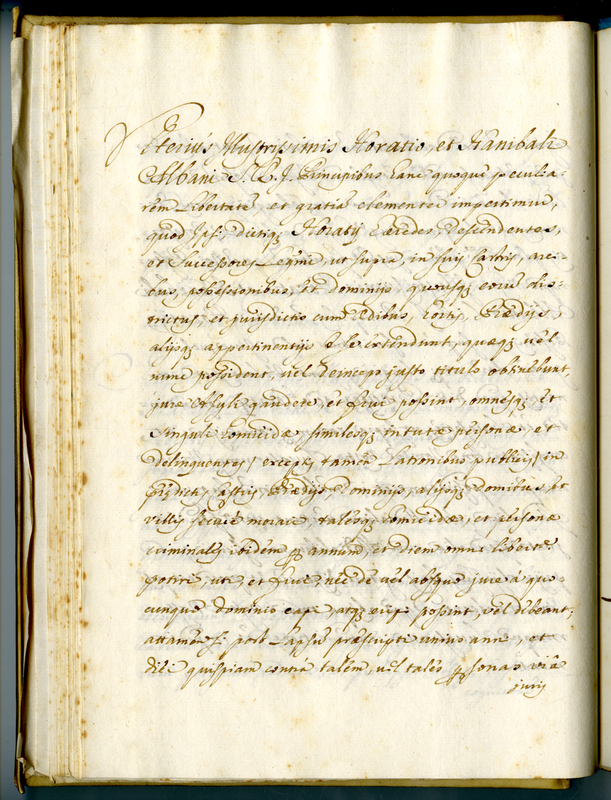 Iterius Illustrissimis Horatio, et Hanibali
Albani S. R. I. Principibus hanc quoque peculia-
rem libertatē, et gratiā clementer impertimur,
quod Ipsi, dictiq; Horatij hæredes, descendentes,
et Successores Legmi, ut supra, in suis Castris, arci-
bus, possessionibus, et dominijs quousq; eorū dis-
trictus, et jurisdictio cum ædibus, hortis, Prædijs
alijsq; appertinentijs se extendunt, quæq; vel
nunc possident, vel deinceps justo titulo obtinebunt,
jure Asyli gaudere, et frui possint, omnesq; et
singuli homicidæ, similesq; personæ, et
delinquentes / exceptis tamen Latronibus publicis / in
Castris, Prædijs, Dominijs, alijsq; domibus, et
villis secure morari, talesq; homicidæ, et personæ
criminales ibidem per annum, et diem omni libertē
potiri, uti, et frui, nec de vel absque jure à quo-
cunque dominio capi, atq; possint, vel debeant,
attamen si post Lapsū præscripti unius anni, et
diei quispiam contra talem, vel tales personas viâ
juris